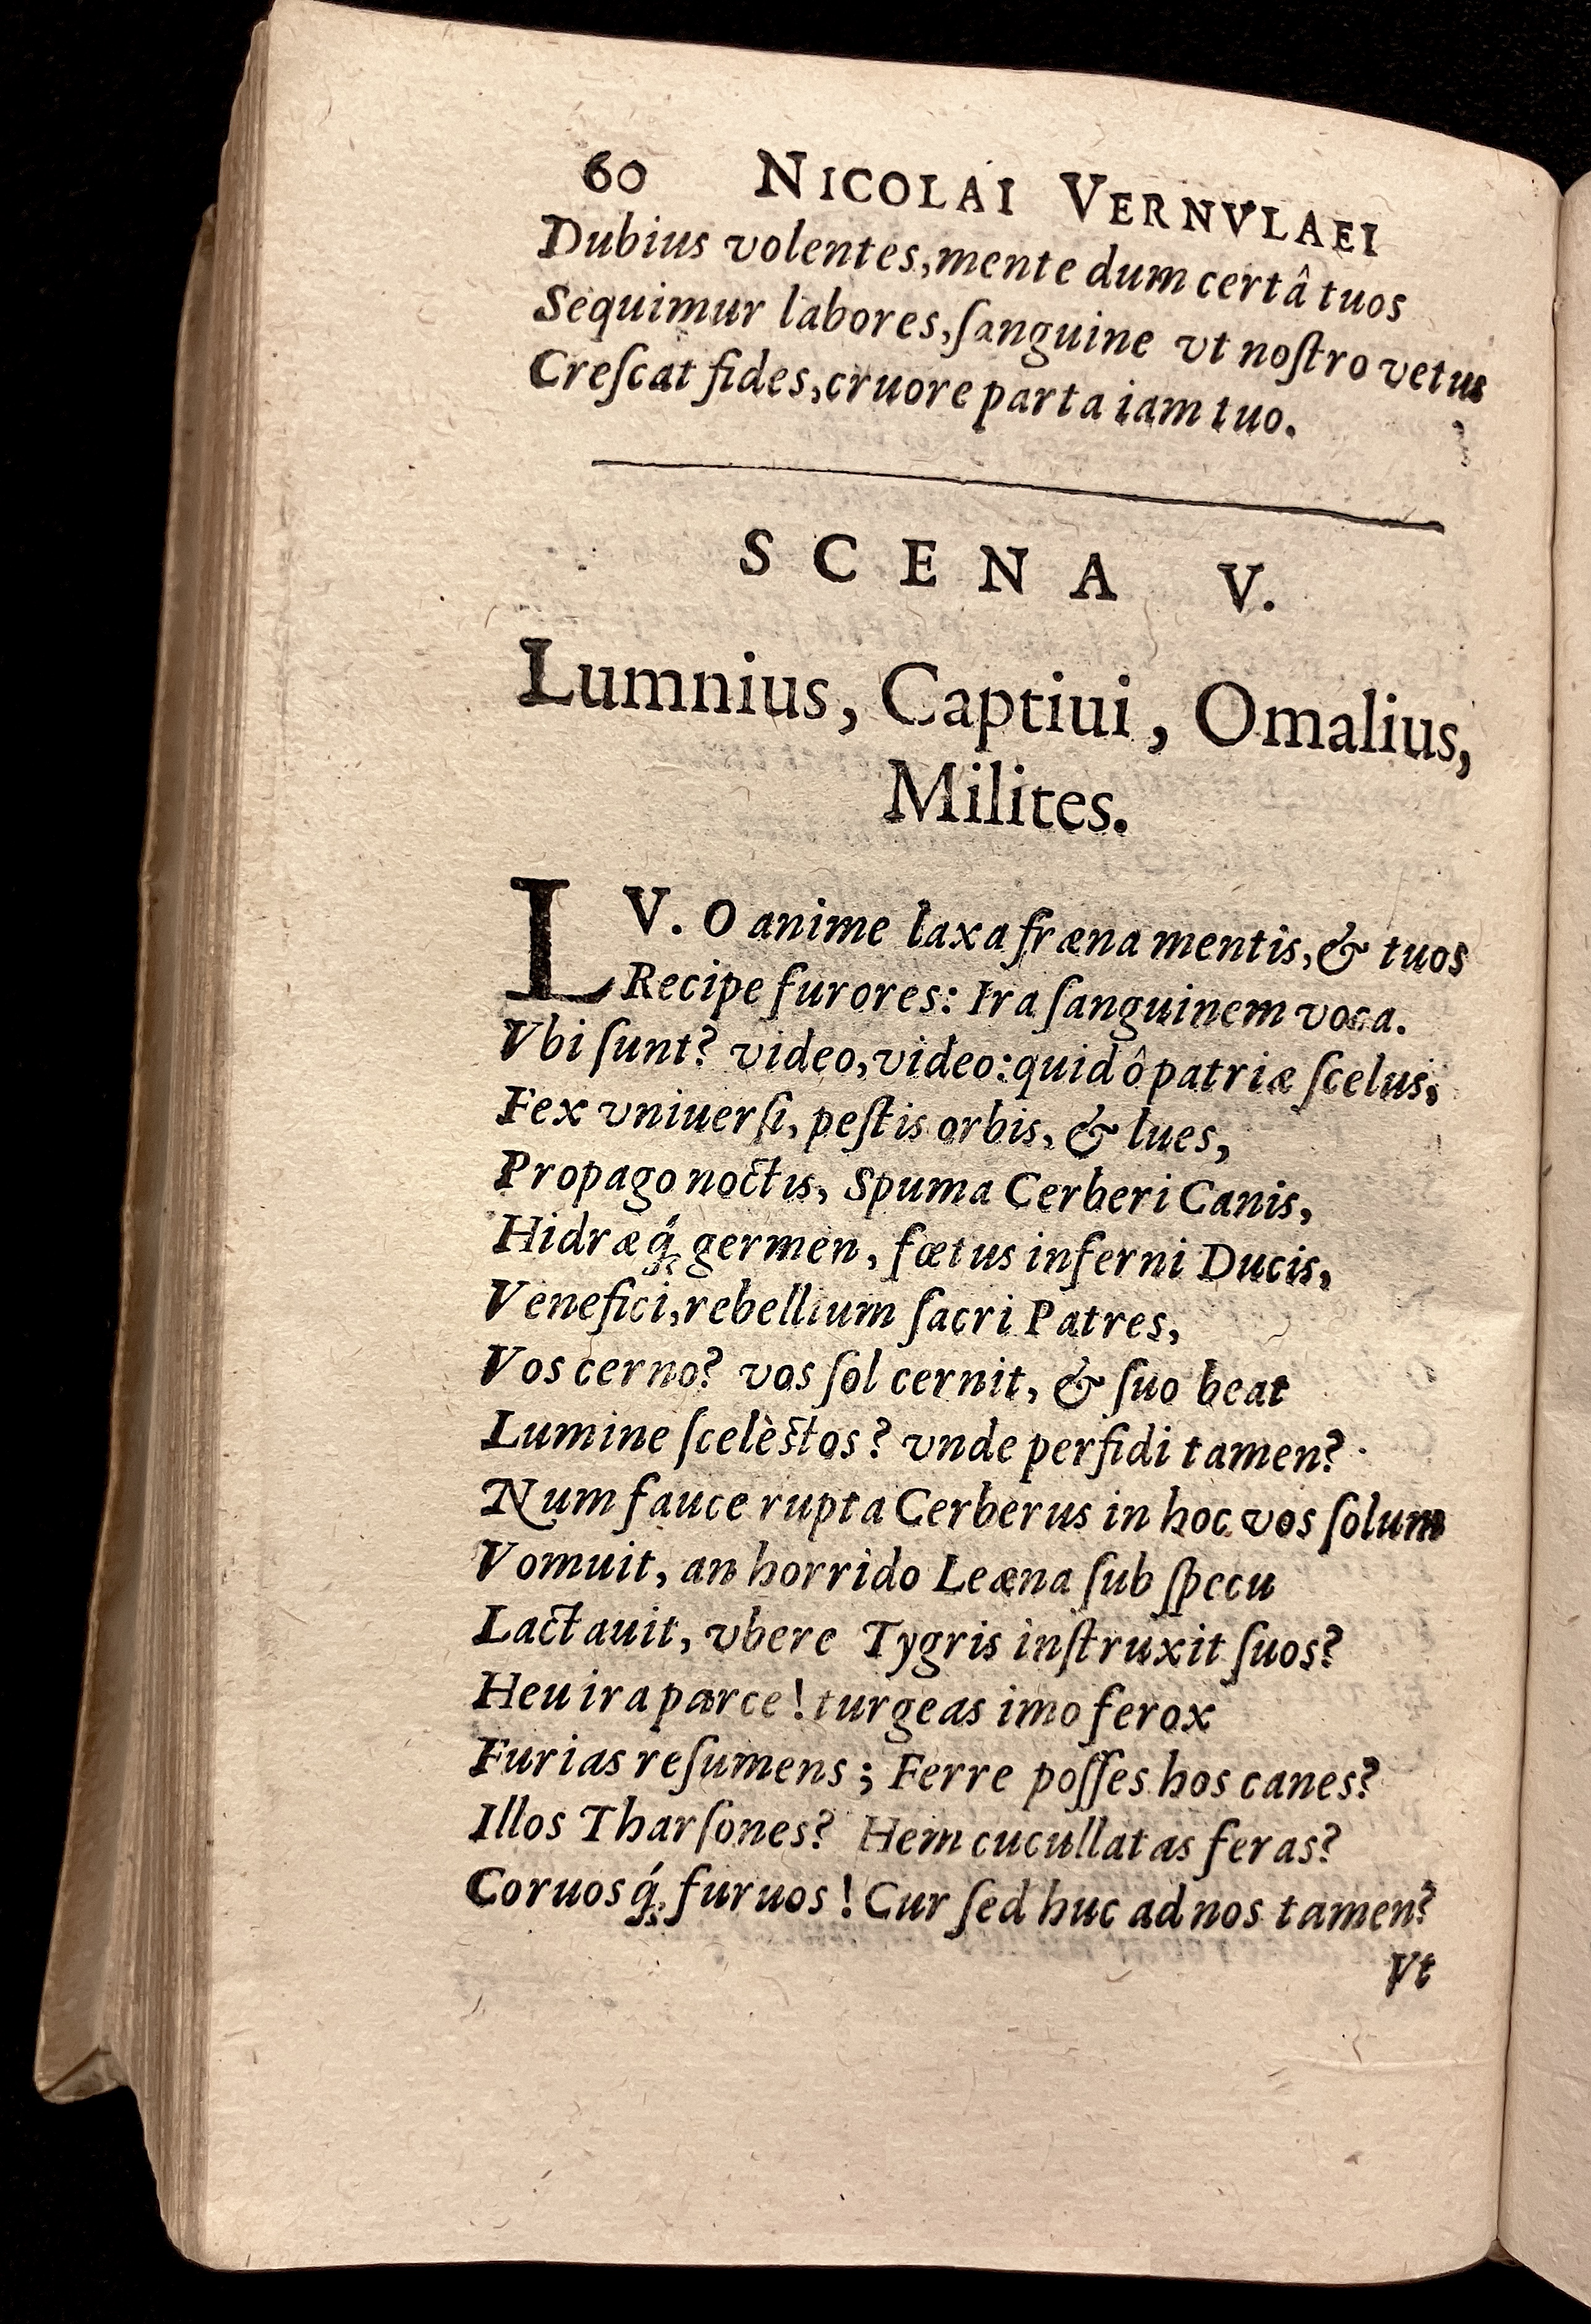 60 NICOLAI VERNVLAEI
Dubius volentes, mente dum certâ tuos
Sequimur labores, ſanguine vt noſtro vetus
Creſcat fides, cruore parta iam tuo.
SCENA V.
Lumnius, Captiui, Omalius,
Milites.
LV. O anime laxa fræna mentis, & tuos
Recipe furores: Ira ſanguinem voca.
Vbi ſunt? video, video: quid ô patriæ ſcelus,
Fex vniuerſi, peſtis orbis, & lues,
Propago noctis, Spuma Cerberi Canis,
Hidræq́; germen, fœtus inferni Ducis,
Venefici, rebellium ſacri Patres,
Vos cerno? vos ſol cernit, & ſuo beat
Lumine ſcelèstos? vnde perfidi tamen?
Num fauce rupta Cerberus in hoc vos ſolum
Vomuit, an horrido Leæna ſub ſpecu
Lactauit, vbere Tygris inſtruxit ſuos?
Heu ira parce! turgeas imo ferox
Furias reſumens; Ferre poſſes hos canes?
Illos Tharſones? Hem cucullatas feras?
Coruosq́; furuos! Cur ſed huc ad nos tamen?
Vt